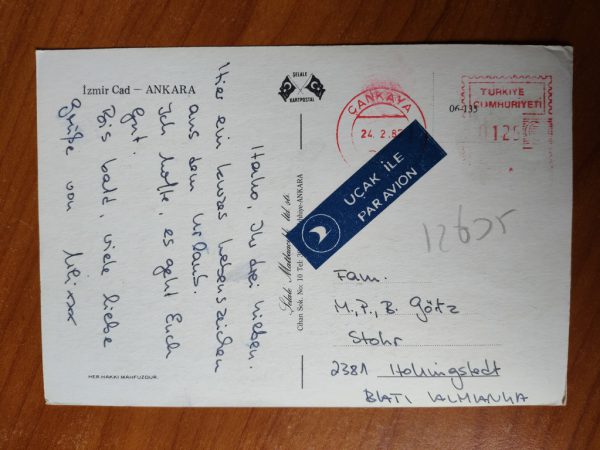 İzmir Cad – ANKARA
ŞELALE
KARTPOSTAL
Hallo, Ihr drei Lieben.
Hier ein kurzes Lebenszeichen
aus dem Urlaub.
Ich hoffe, es geht Euch
gut.
Bis bald, viele liebe
Grüße von
HER HAKKI MAHFUZDUR.
Şelale Matbaacılık ltd. şti.
Cihan Sok. No: 10 Tel: Sıhhiye-ANKARA
ÇANKAYA
24. 2. 87
TÜRKİYE
CUMHURİYETİ
06-135
0120
UÇAK İLE
PAR AVION
Fam.
M., P., B. Götz
Stohr
2381 Hollingstedt
BATI ALMANYA